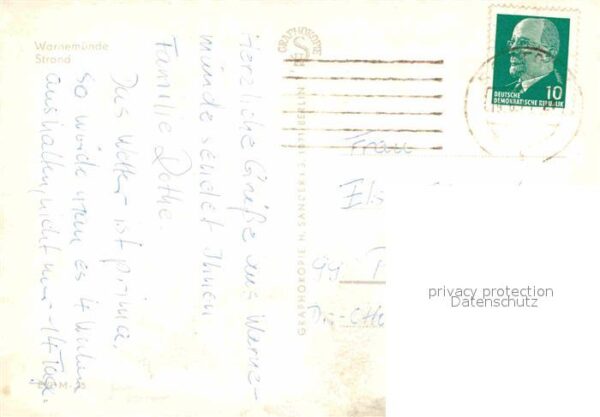 Warnemünde
Strand
Herzliche Grüße aus Warne-
münde sendet Ihnen
Familie Rothe.
Das Wetter ist prima.
so würde man es 4 Wochen
aushalten, nicht nur 14 Tage.
GRAPHOKOPIE
GRAPHOKOPIE H. SANDER KG BERLIN
10
DEUTSCHE
DEMOKRATISCHE REPUBLIK
Frau
privacy protection
Datenschutz